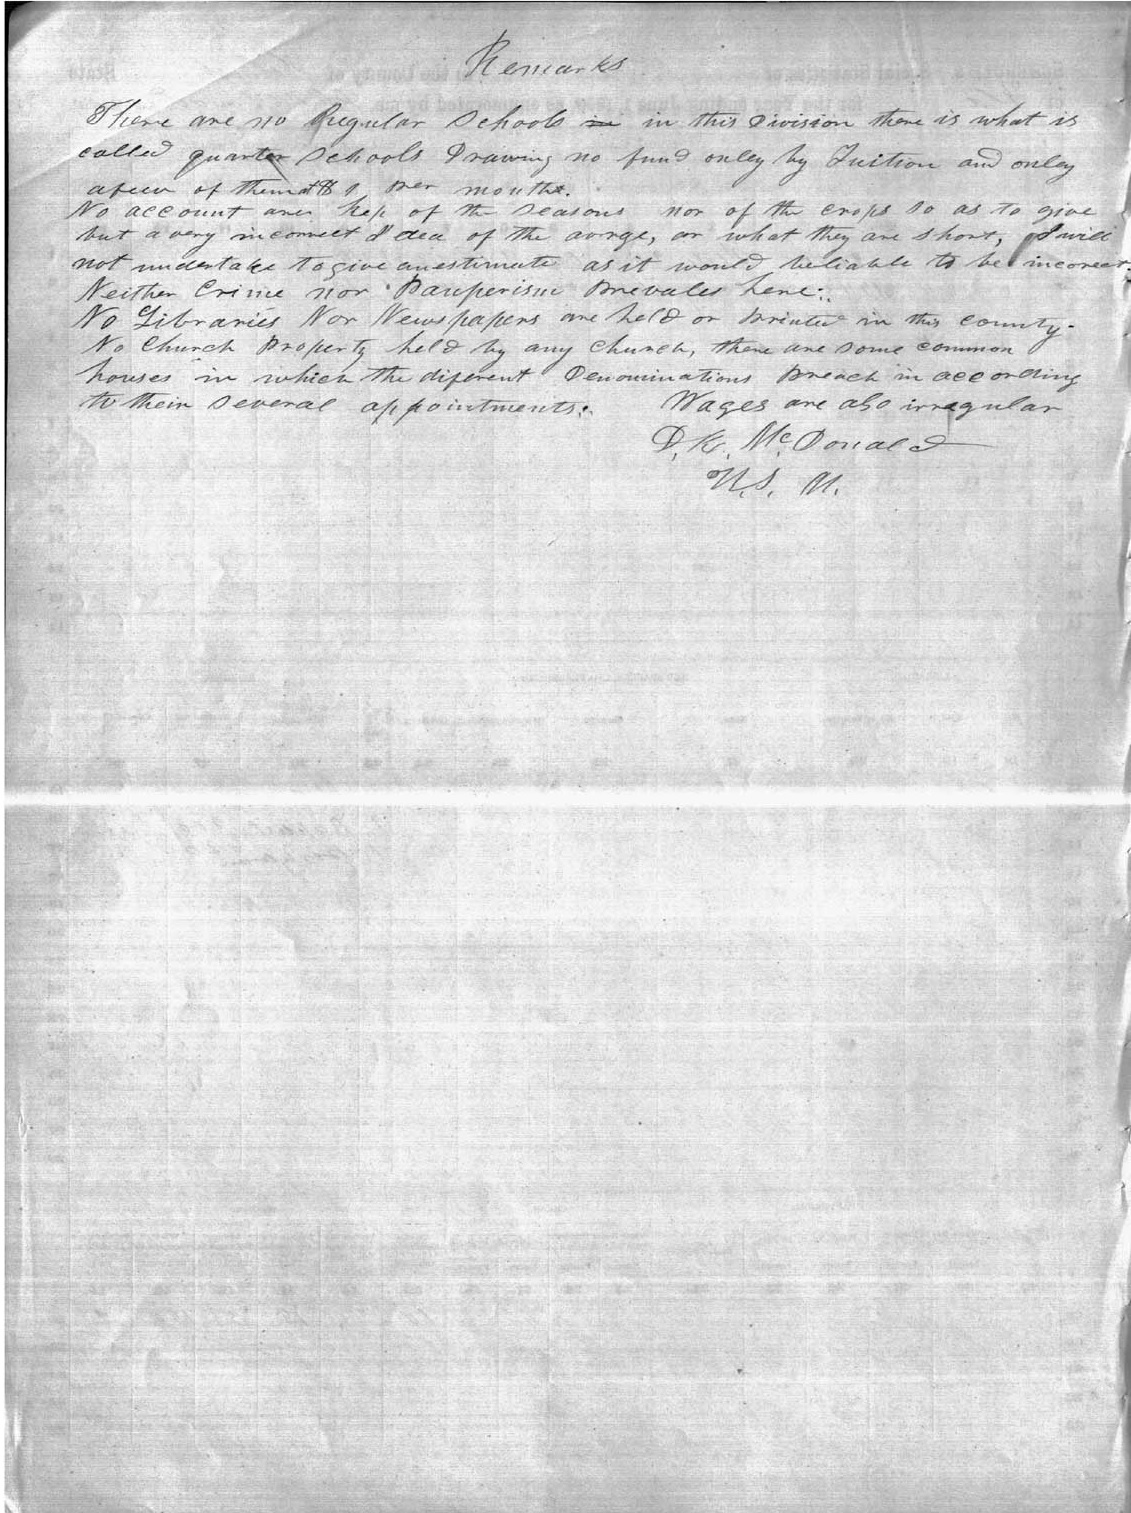 Remarks
There are no Regular Schools in in this Division there is what is
called quarter Schools Drawing no fund onley by Tuition and onley
a few of them at $1 per month.
No account are kep of the seasons nor of the crops so as to give
but a very incorrect Idea of the avrge, or what they are short, I will
not undertake to give an estimate as it would be liable to be incorect.
Neither Crime nor Pauperism Prevales here.
No Libraries Nor Newspapers are held or printed in this county.
No Church Property held by any church, there are some common
houses in which the diferent Denominations Preach in according
to their several appointments. Wages are also irregular
D. K. McDonald
U.S. M.